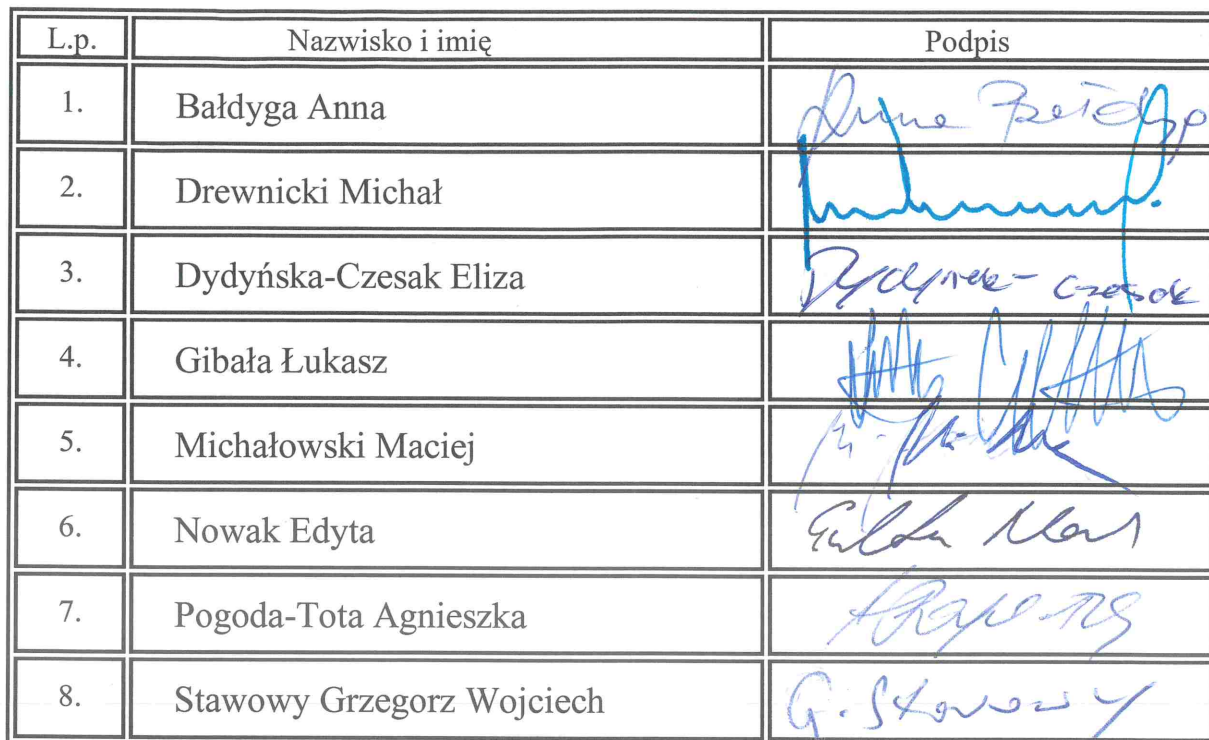 L.p. Nazwisko i imię Podpis
1. Bałdyga Anna Anna Bałdyga
2. Drewnicki Michał
3. Dydyńska-Czesak Eliza
4. Gibała Łukasz
5. Michałowski Maciej
6. Nowak Edyta
7. Pogoda-Tota Agnieszka
8. Stawowy Grzegorz Wojciech G. Stawowy